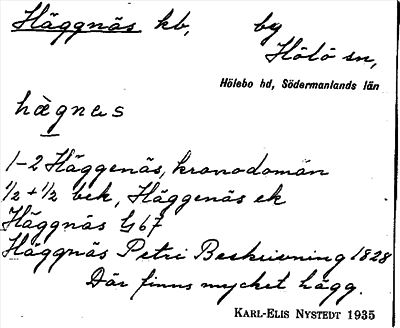 Häggnäs kb, by
Hölö sn,
Hölebo hd, Södermanlands län
hægnɛs
1-2 Häggenäs, kronodomän
1/2 + 1/2 bek, Häggenäs ek
Häggnäs G 67
Häggnäs Petri Beskrivning 1828
Där finns mycket hägg.
KARL-ELIS NYSTEDT 1935